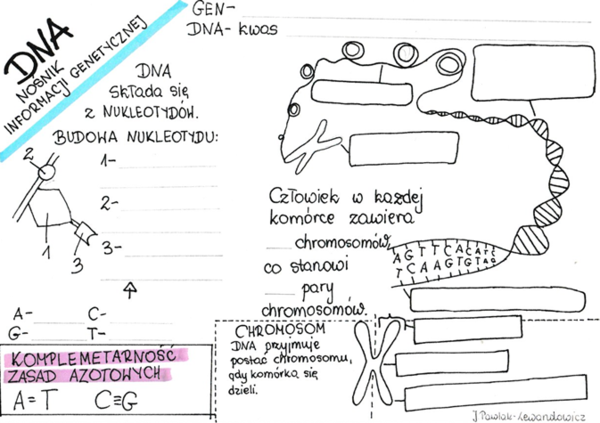 DNA
NOŚNIK
INFORMACJI GENETYCZNEJ
GEN-
DNA- kwas
DNA
składa się
z NUKLEOTYDÓW.
BUDOWA NUKLEOTYDU:
2
1
3
1-
2-
3-
A- C-
G- T-
KOMPLEMETARNOŚĆ
ZASAD AZOTOWYCH
A=T C≡G
Człowiek w każdej
komórce zawiera
chromosomów,
co stanowi
pary
chromosomów.
AGTTCACATC
TCAAGTGTAG
CHROMOSOM
DNA przyjmuje
postać chromosomu,
gdy komórka się
dzieli.
J Pawlak-Lewandowicz